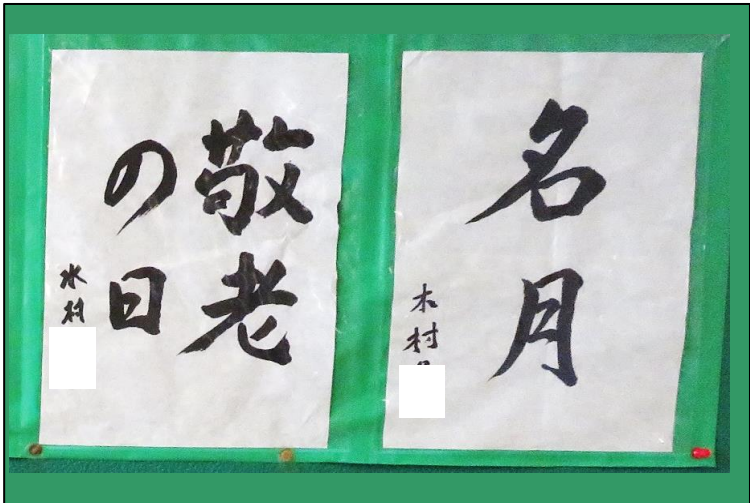 名月
木村
敬老
の日
水村